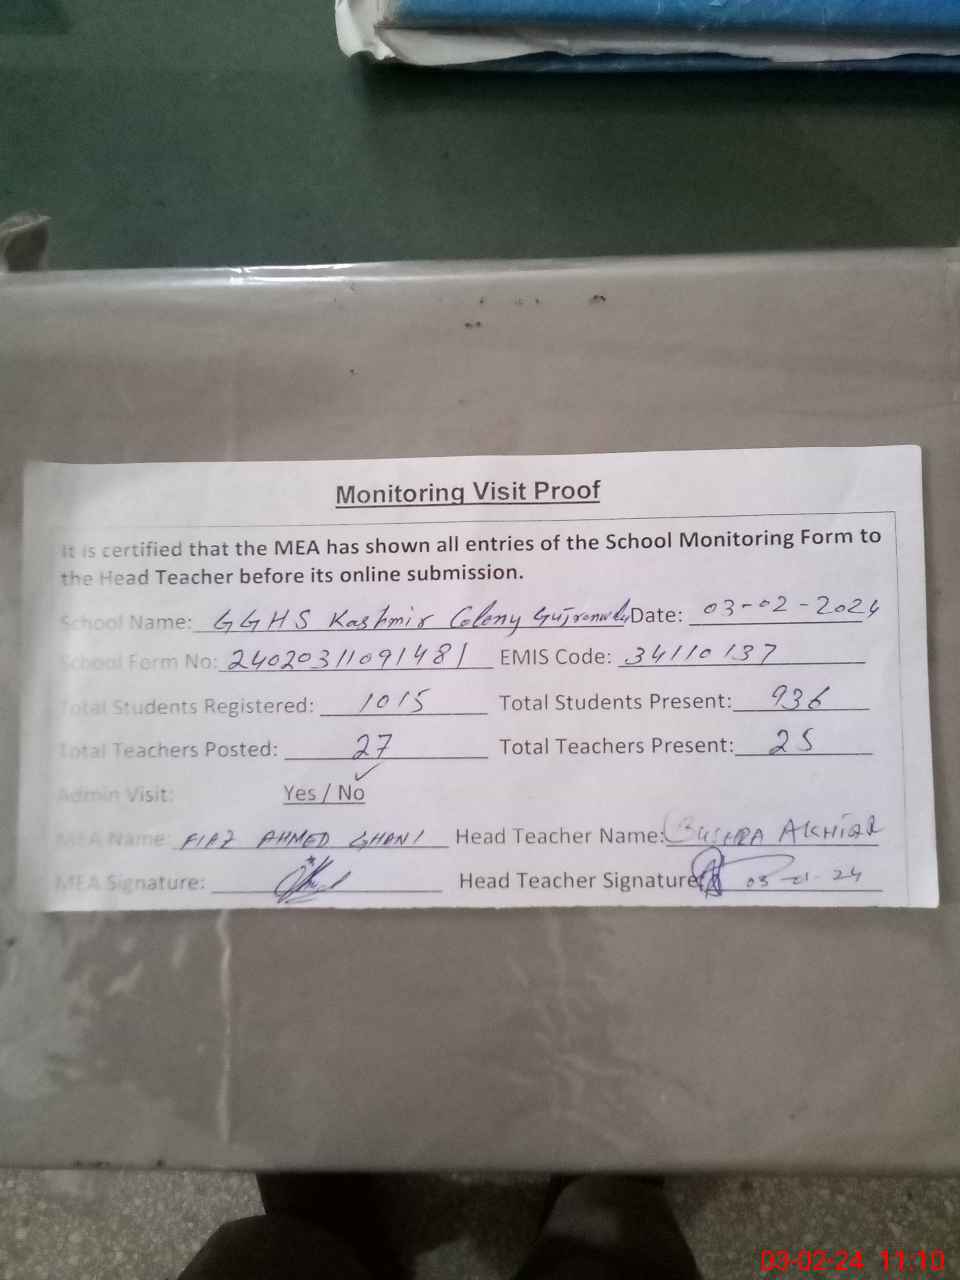 Monitoring Visit Proof
It is certified that the MEA has shown all entries of the School Monitoring Form to
the Head Teacher before its online submission.
School Name: GGHS Kashmir Colony Gujranwala Date: 03-02-2024
School Form No: 24020311091481 EMIS Code: 34110137
Total Students Registered: 1015 Total Students Present: 936
Total Teachers Posted: 27 Total Teachers Present: 25
Admin Visit: Yes / No
MEA Name: FIAZ AHMED GHANI Head Teacher Name: BUSHRA AKHTAR
MEA Signature: Head Teacher Signature 03-01-24
03-02-24 11:10